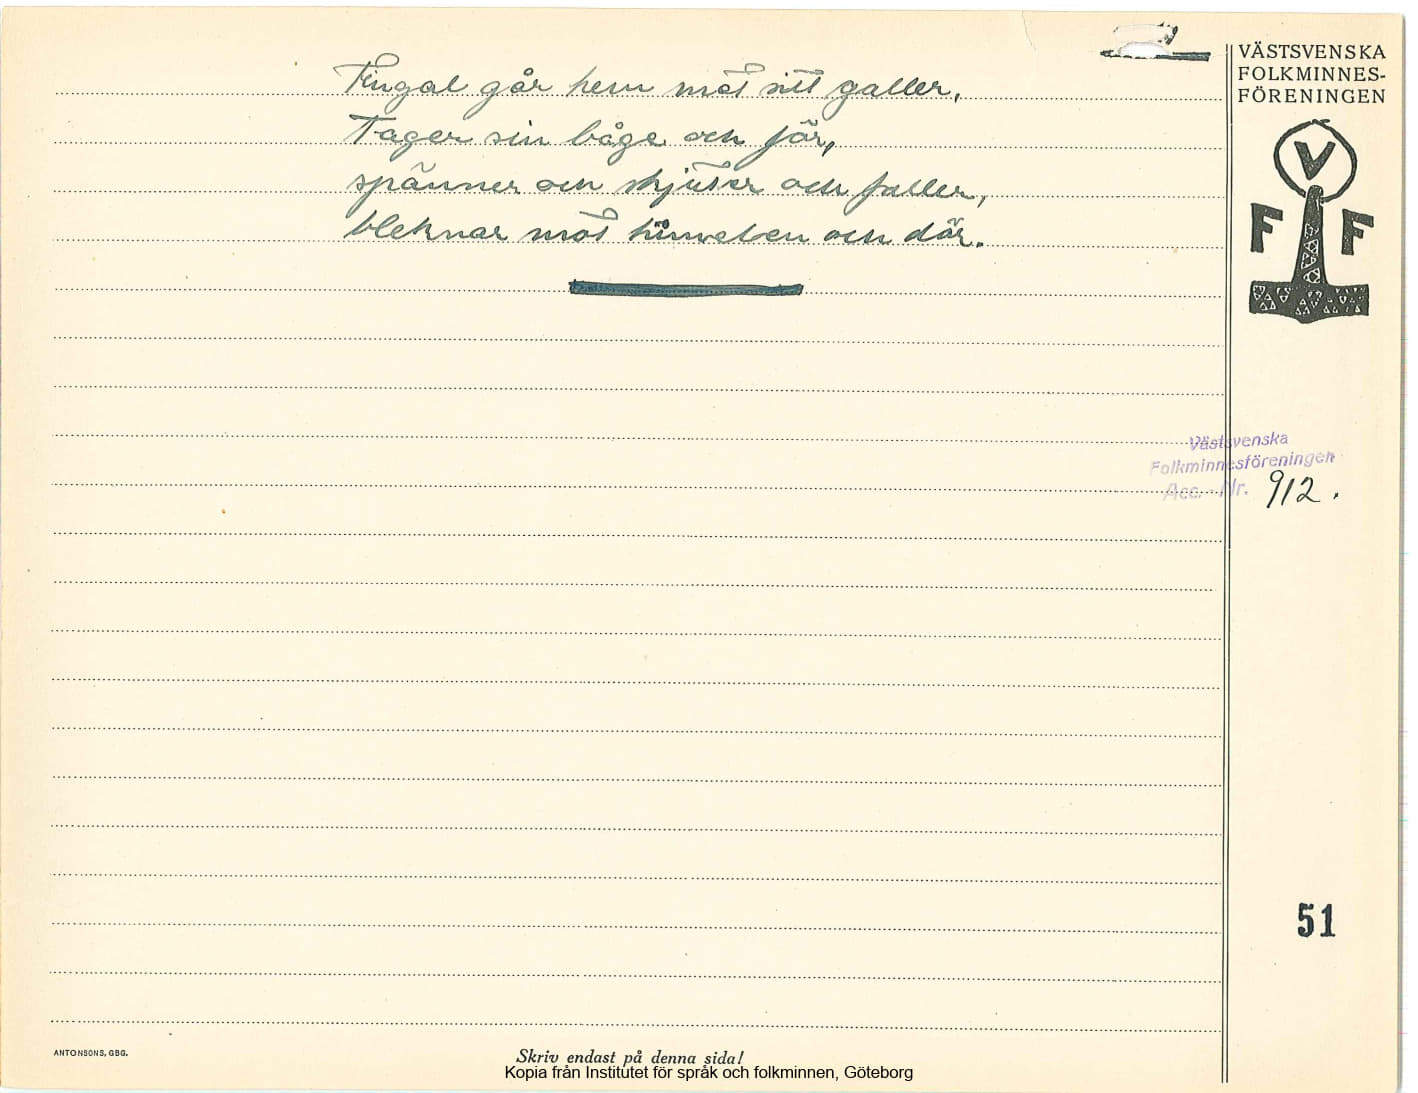 VÄSTSVENSKA
FOLKMINNES-
FÖRENINGEN
V
F F
Fingal går hem mot sitt galler,
Tager sin båge och jär,
spänner och skjuter och faller,
bleknar mot himelen och dör.
Västsvenska
Folkminnesföreningen
Acc.-Nr. 912.
51
ANTONSONS, GBG.
Skriv endast på denna sida!
Kopia från Institutet för språk och folkminnen, Göteborg